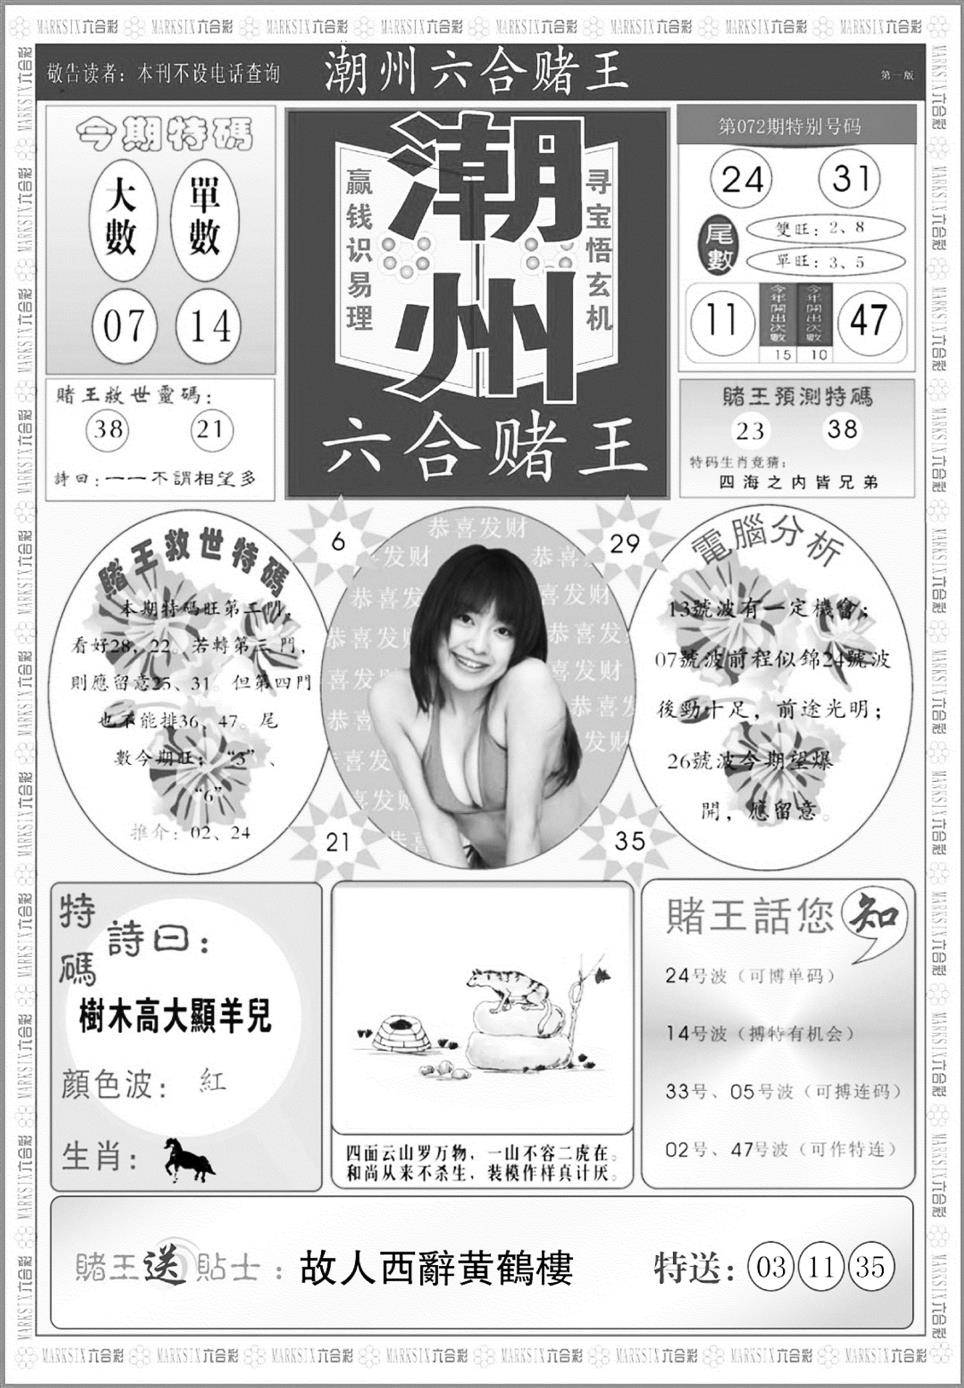 MARKSIX六合彩
敬告读者：本刊不设电话查询
潮州六合赌王
第一版
今期特碼
大數
單數
07
14
赢钱识易理
潮州
寻宝悟玄机
六合赌王
第072期特别号码
24
31
尾數
雙旺：2、8
單旺：3、5
11
今年開出次數
15
今年開出次數
10
47
賭王救世靈碼：
38
21
詩曰：一一不謂相望多
賭王預測特碼
23
38
特码生肖竞猜：
四海之内皆兄弟
賭王救世特碼
本期特碼旺第二門，
看好28，22。若轉第三門，
則應留意25、31。但第四門
也不能排36、47。尾
數今期旺：“3”、
“6”
推介：02、24
6
29
21
35
恭喜发财
電腦分析
13號波有一定機會；
07號波前程似錦24號波
後勁十足，前途光明；
26號波今期望爆
開，應留意。
特碼
詩曰：
樹木高大顯羊兒
顔色波：紅
生肖：
四面云山罗万物，一山不容二虎在。
和尚从来不杀生，装模作样真计厌。
賭王話您知
24号波（可博单码）
14号波（搏特有机会）
33号、05号波（可搏连码）
02号、47号波（可作特连）
賭王送貼士：故人西辭黄鶴樓
特送：03 11 35